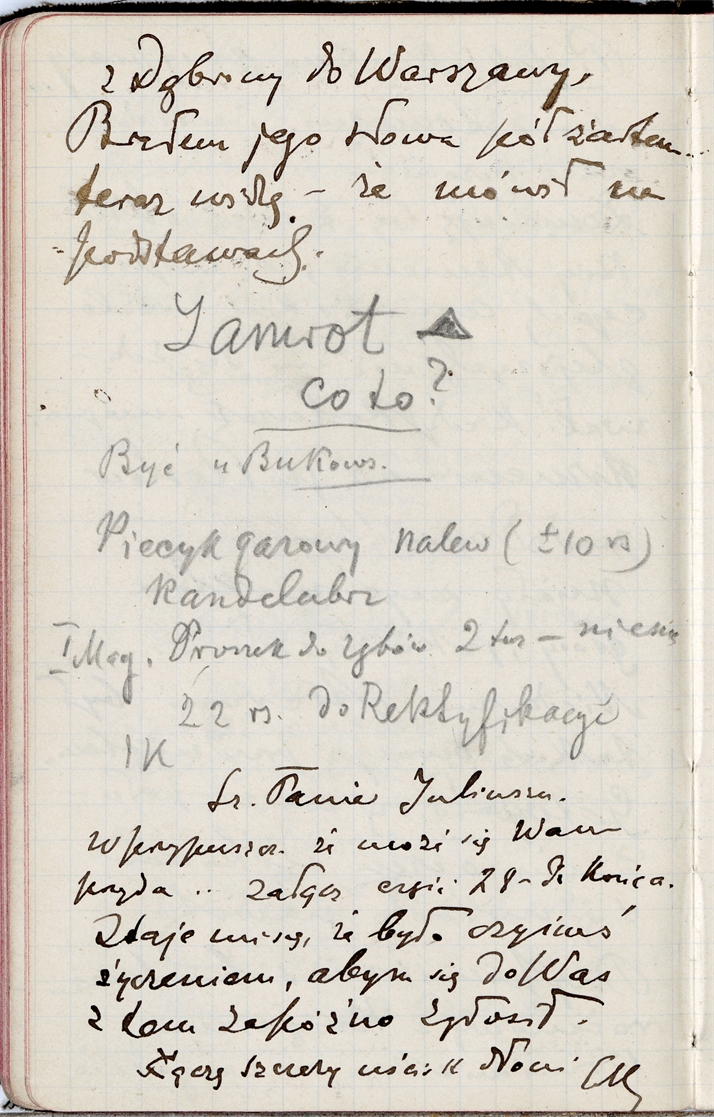 z Dąbrowy do Warszawy.
Brałem jego słowa pół żartem..
teraz widzę – że mówił na
podstawach.
Jamrot
co to?
Być u Bukows.
Piecyk gazowy nalew (±10 rs)
Kandelabr
I Mag. Proszek do zębów 2 tur –
22 rs. do Rektyfikacyi
1K
Sz. Panie Juliuszu.
W przypuszcz. że może się Wam
przyda .. załącz część 24-
Zdaje mi się, że było czyimś
życzeniem, abym się do Was
z tem zapóźno zgłosił.
Łączę szczery uścisk dłoni